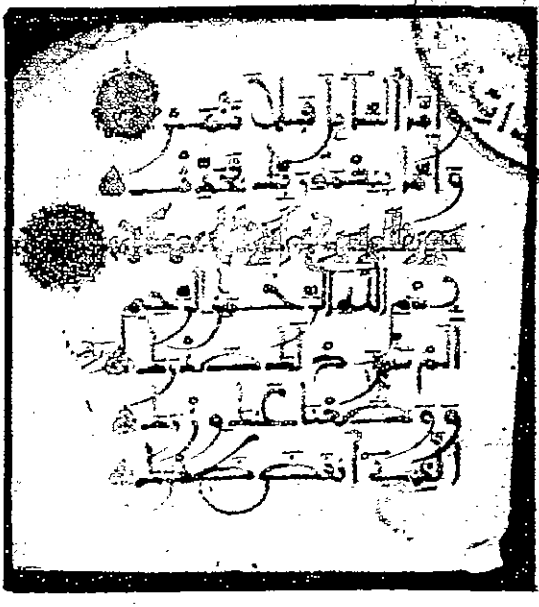 وأما السائل فلا تنهر
وأما بنعمة ربك فحدث
بسم الله الرحمن الرحيم
ألم نشرح لك صدرك
ووضعنا عنك وزرك
الذي أنقض ظهرك